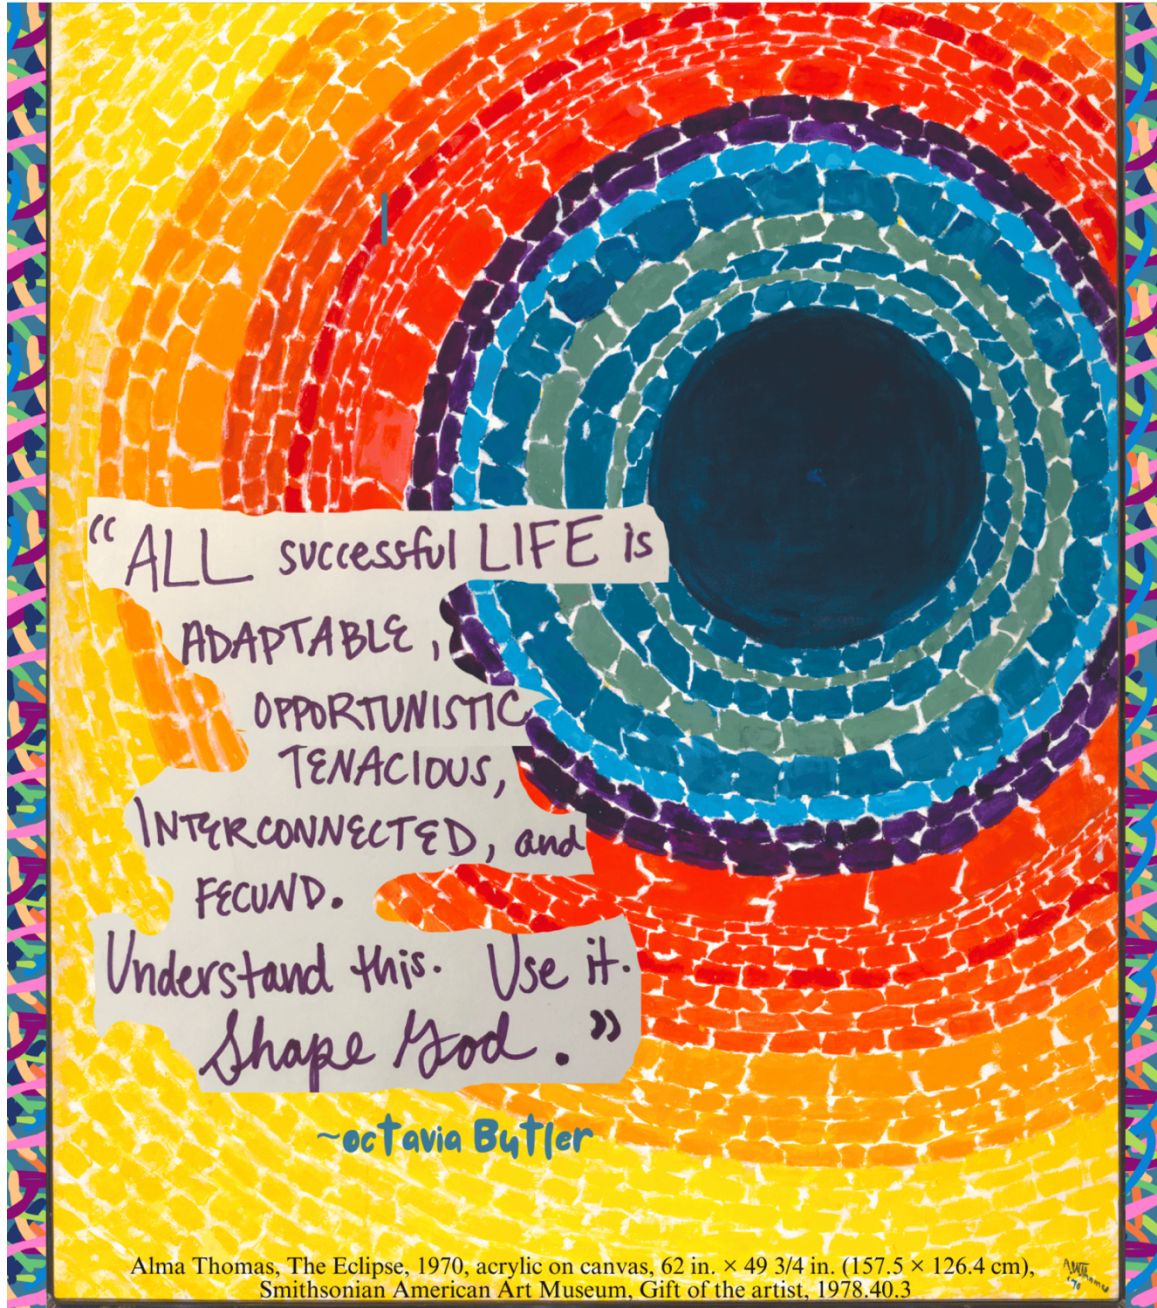 “ALL successful LIFE is
ADAPTABLE,
OPPORTUNISTIC
TENACIOUS,
INTERCONNECTED, and
FECUND.
Understand this. Use it.
Shape God.”
~octavia Butler
Alma Thomas, The Eclipse, 1970, acrylic on canvas, 62 in. × 49 3/4 in. (157.5 × 126.4 cm),
Smithsonian American Art Museum, Gift of the artist, 1978.40.3